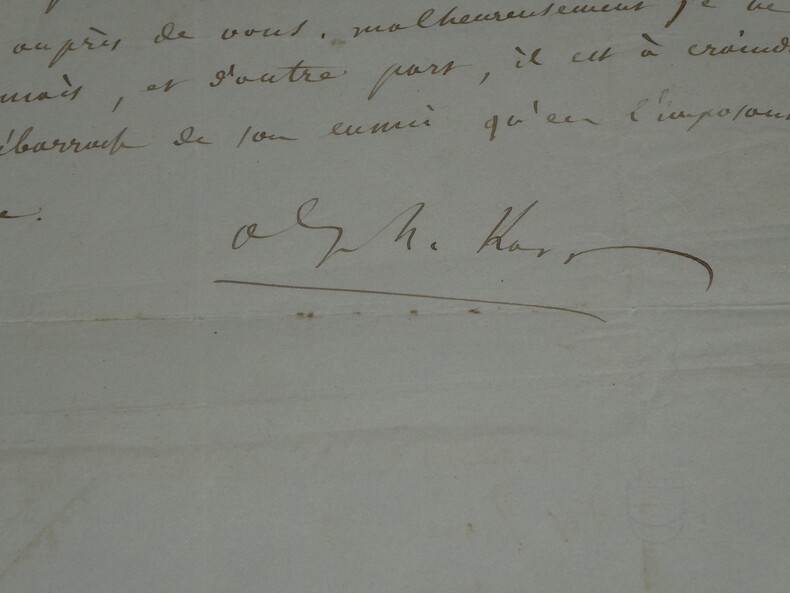 auprès de vous. malheureusement je ne
mais, et d'autre part, il est à craind
ébarrasse de son ennui qu'en l'imposant
e.
alph. Karr